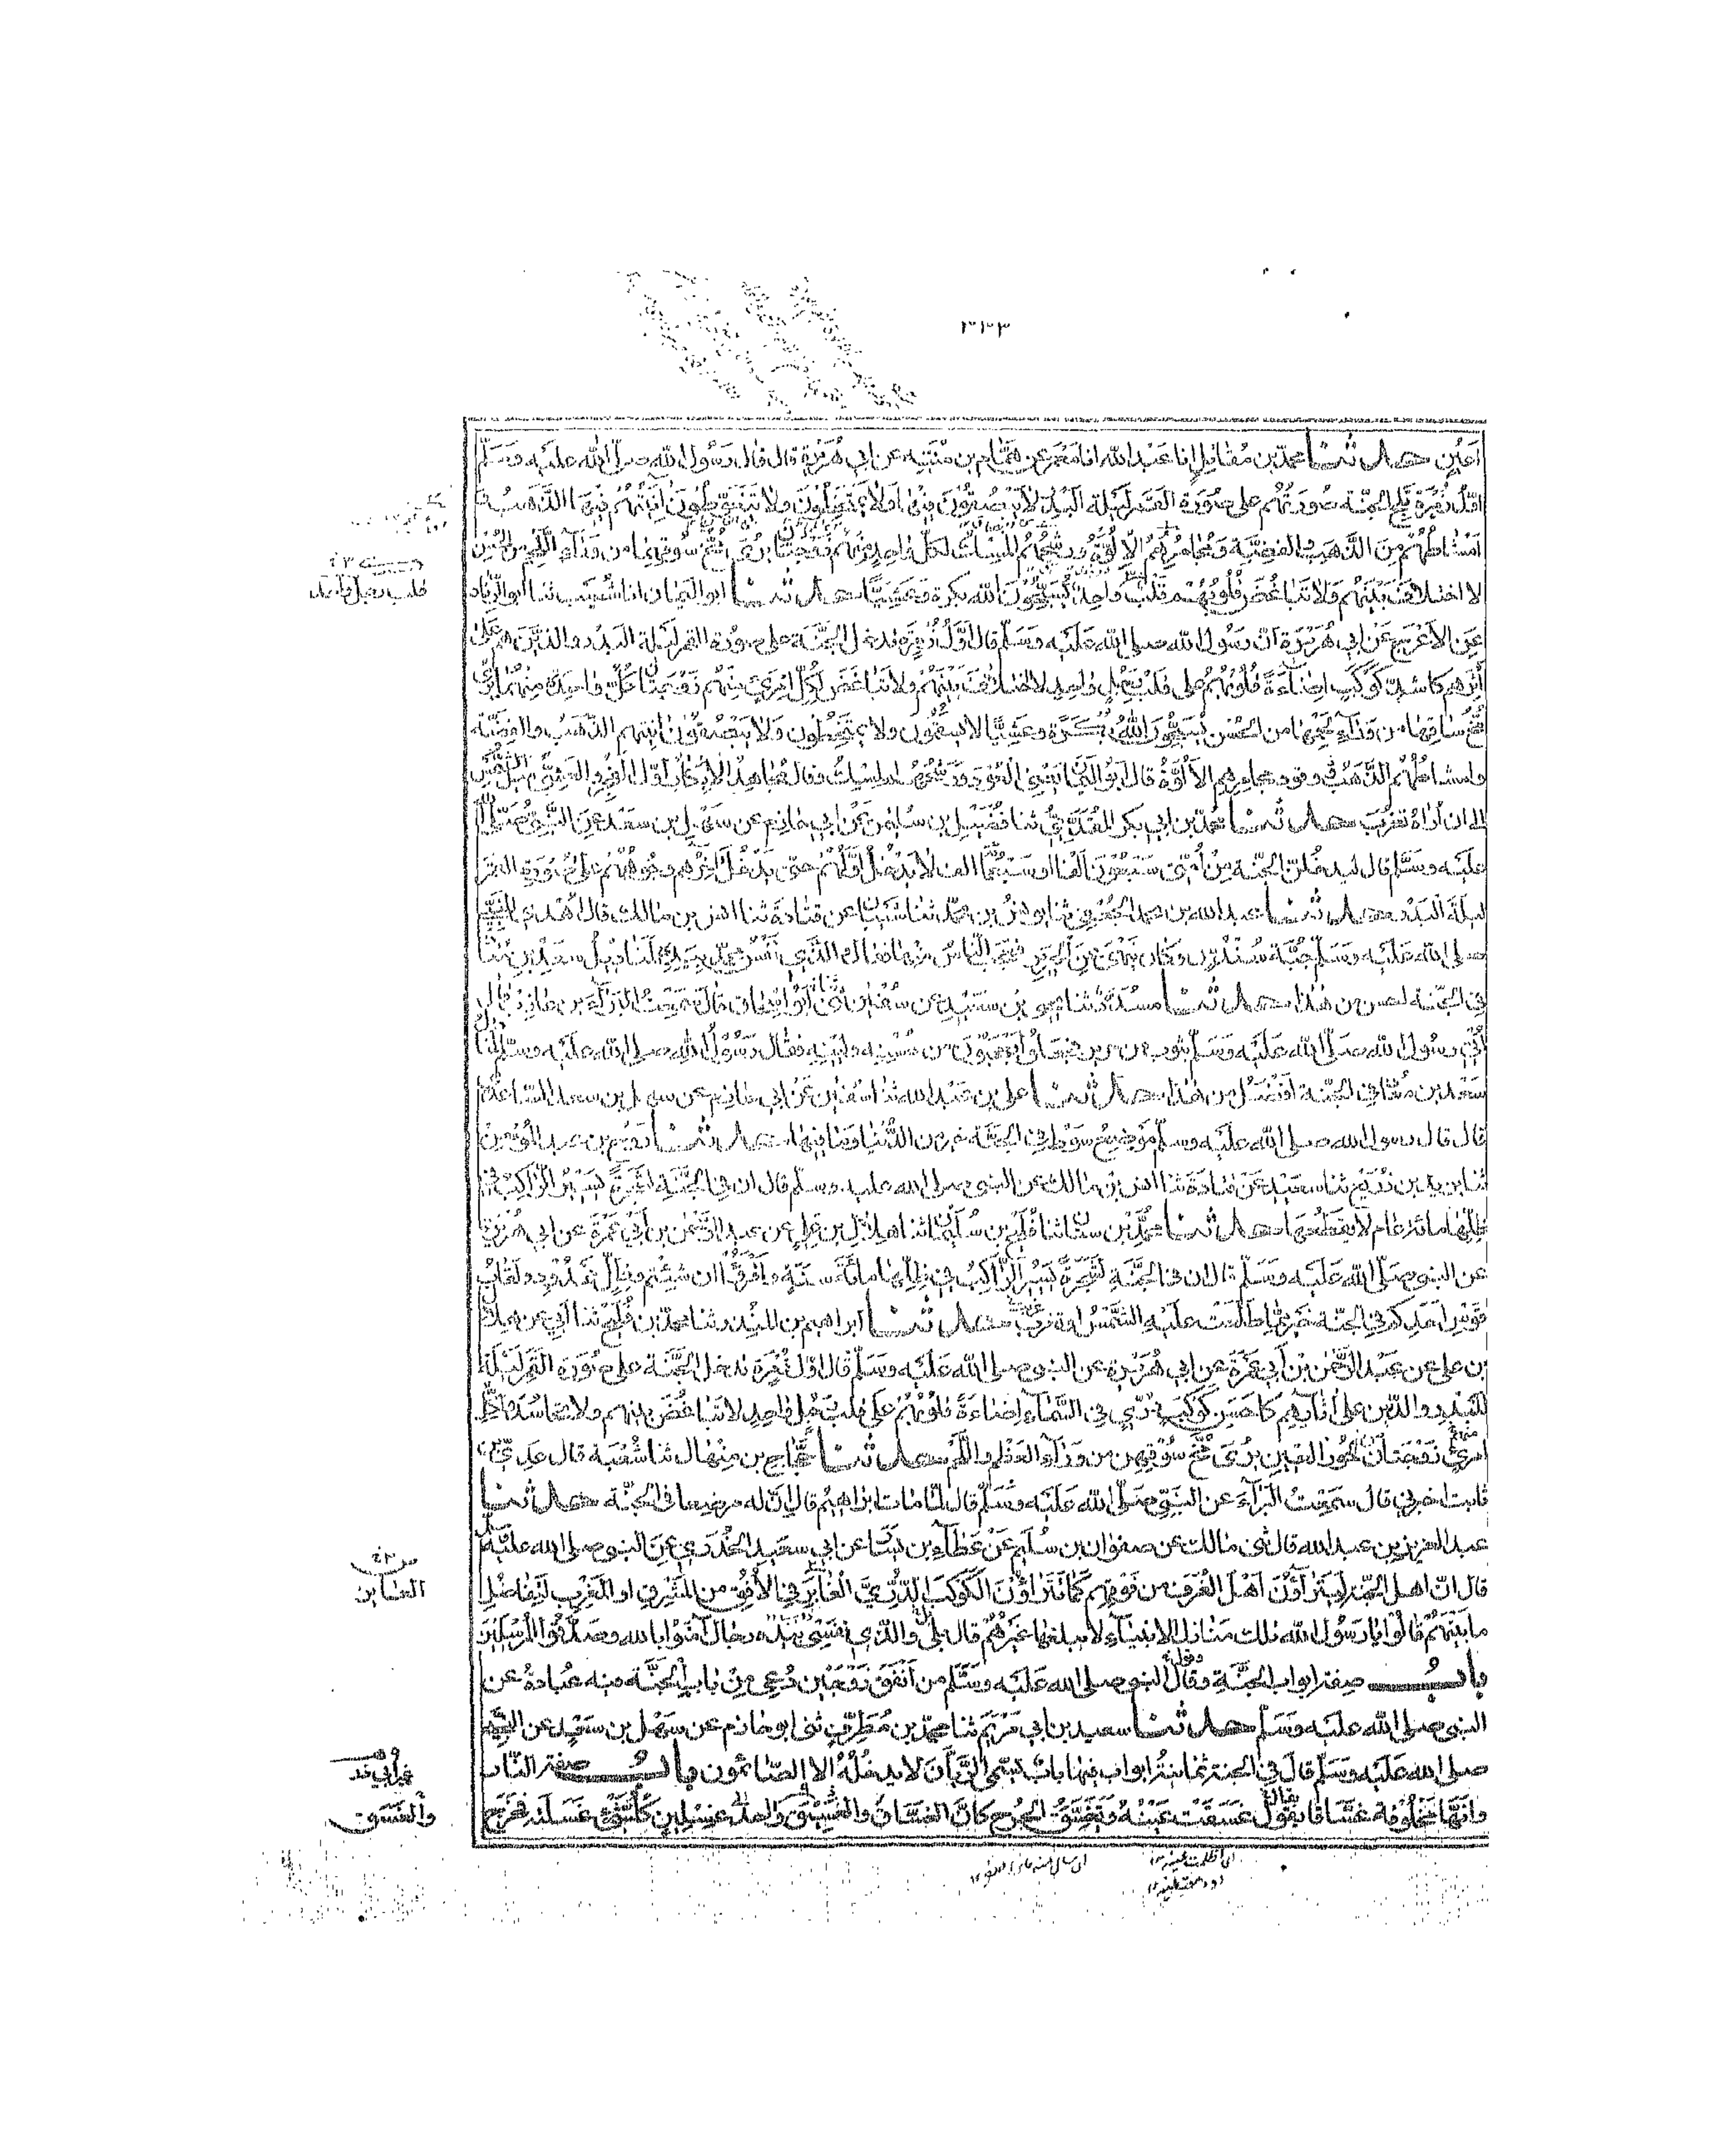 ٣٣٣
أعين حدثنا محمد بن مقاتل انا عبد الله انا معمر عن همام بن منبه عن ابي هريرة قال قال رسول الله صلى الله عليه وسلم
اول زمرة تلج الجنة صورتهم على صورة القمر ليلة البدر لا يبصقون فيها ولا يمتخطون ولا يتغوطون آنيتهم فيها الذهب
امشاطهم من الذهب والفضة ومجامرهم الالوة ورشحهم المسك لكل واحد منهم زوجتان يرى مخ سوقهما من وراء اللحم من الحسن
لا اختلاف بينهم ولا تباغض قلوبهم قلب واحد يسبحون الله بكرة وعشيا حدثنا ابو اليمان انا شعيب ثنا ابو الزناد
عن الاعرج عن ابي هريرة ان رسول الله صلى الله عليه وسلم قال اول زمرة تدخل الجنة على صورة القمر ليلة البدر والذين هم على
اثرهم كاشد كوكب اضاءة قلوبهم على قلب رجل واحد لا اختلاف بينهم ولا تباغض لكل امرئ منهم زوجتان كل واحدة منهما يرى
مخ ساقها من وراء لحمها من الحسن يسبحون الله بكرة وعشيا لا يسقمون ولا يمتخطون ولا يبصقون آنيتهم الذهب والفضة
وامشاطهم الذهب وقود مجامرهم الالوة قال ابو اليمان يعني العود ورشحهم المسك وقال مجاهد الابكار اول الفجر والعشي ميل الشمس
الى ان اراه تغرب حدثنا محمد بن ابي بكر المقدمي ثنا فضيل بن سليمن عن ابي حازم عن سهل بن سعد عن النبي صلى الله
عليه وسلم قال ليدخلن الجنة من امتي سبعون الفا او سبعمائة الف لا يدخل اولهم حتى يدخل اخرهم وجوههم على صورة القمر
ليلة البدر حدثنا عبد الله بن محمد الجعفي ثنا يونس بن محمد ثنا شيبان عن قتادة ثنا انس بن مالك قال اهدي للنبي
صلى الله عليه وسلم جبة سندس وكان ينهى عن الحرير فعجب الناس منها فقال والذي نفس محمد بيده لمناديل سعد بن معاذ
في الجنة احسن من هذا حدثنا مسدد ثنا يحيى بن سعيد عن سفيان ثني ابو اسحاق قال سمعت البراء بن عازب قال
اتي رسول الله صلى الله عليه وسلم بثوب من حرير فجعلوا يعجبون من حسنه ولينه فقال رسول الله صلى الله عليه وسلم لمناديل
سعد بن معاذ في الجنة افضل من هذا حدثنا علي بن عبد الله ثنا سفين عن ابي حازم عن سهل بن سعد الساعدي
قال قال رسول الله صلى الله عليه وسلم موضع سوط في الجنة خير من الدنيا وما فيها حدثنا روح بن عبد المؤمن
ثنا يزيد بن زريع ثنا سعيد عن قتادة ثنا انس بن مالك عن النبي صلى الله عليه وسلم قال ان في الجنة لشجرة يسير الراكب في
ظلها مائة عام لا يقطعها حدثنا محمد بن سنان ثنا فليح بن سليمان ثنا هلال بن علي عن عبد الرحمن بن ابي عمرة عن ابي هريرة
عن النبي صلى الله عليه وسلم قال ان في الجنة لشجرة يسير الراكب في ظلها مائة سنة واقرؤا ان شئتم وظل ممدود ولقاب
قوس احدكم في الجنة خير مما طلعت عليه الشمس او تغرب حدثنا ابراهيم بن المنذر ثنا محمد بن فليح ثنا ابي عن هلال
بن علي عن عبد الرحمن بن ابي عمرة عن ابي هريرة عن النبي صلى الله عليه وسلم قال اول زمرة تدخل الجنة على صورة القمر ليلة
البدر والذين على آثارهم كاحسن كوكب دري في السماء اضاءة قلوبهم على قلب رجل واحد لا تباغض بينهم ولا تحاسد لكل
امرئ زوجتان من الحور العين يرى مخ سوقهن من وراء العظم واللحم حدثنا حجاج بن منهال ثنا شعبة قال عدي بن
ثابت اخبرني قال سمعت البراء عن النبي صلى الله عليه وسلم قال لما مات ابراهيم قال ان له مرضعا في الجنة حدثنا
عبد العزيز بن عبد الله قال ثني مالك عن صفوان بن سليم عن عطاء بن يسار عن ابي سعيد الخدري عن النبي صلى الله عليه وسلم
قال ان اهل الجنة ليتراءون اهل الغرف من فوقهم كما تتراءون الكوكب الدري الغابر في الافق من المشرق او المغرب لتفاضل
ما بينهم قالوا يا رسول الله تلك منازل الانبياء لا يبلغها غيرهم قال بلى والذي نفسي بيده رجال آمنوا بالله وصدقوا المرسلين
باب صفة ابواب الجنة وقال النبي صلى الله عليه وسلم من انفق زوجين دعي من باب الجنة فيه عبادة عن
النبي صلى الله عليه وسلم حدثنا سعيد بن ابي مريم ثنا محمد بن مطرف ثني ابو حازم عن سهل بن سعد عن النبي
صلى الله عليه وسلم قال في الجنة ثمانية ابواب فيها باب يسمى الريان لا يدخله الا الصائمون باب صفة النار
وانها مخلوقة غساقا يقال غسقت عينه ويغسق الجرح كان الغساق والغسيق واحد غسلين كل شئ غسلته فخرج
قلب رجل واحد
الغابر
والغسق